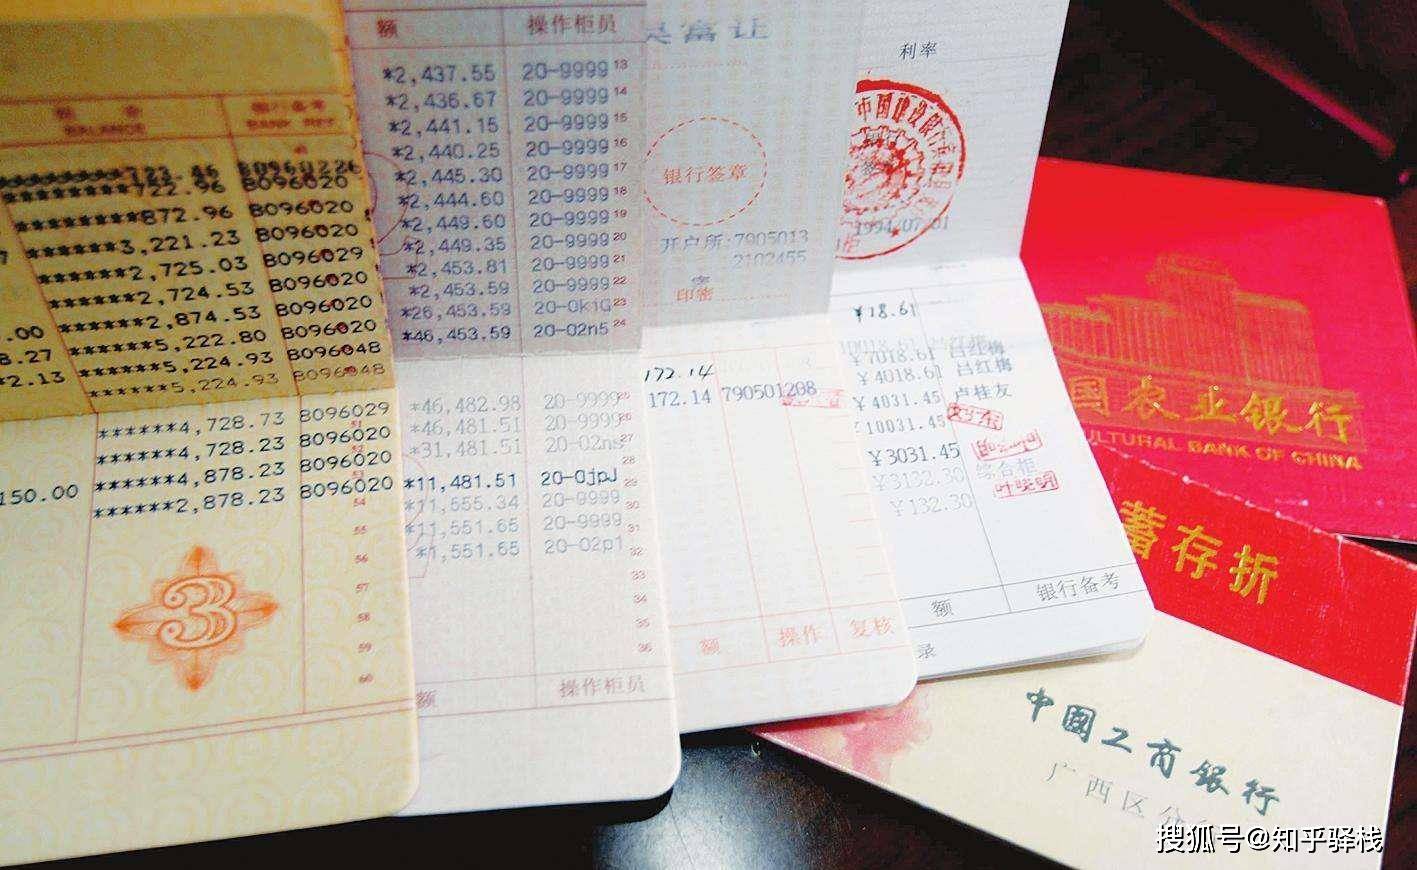 BALANCE
BANK REF
723.46 B0960226
*******722.96 B096020
********872.96 B096020
******3,221.23 B096020
******2,725.03 B096029
******2,724.53 B096020
******2,874.53 B096020
.00 ******5,222.80 B096020
8.27 ******5,224.93 B096048
*2.13 ******5,224.93 B096048
******4,728.73 B096029
******4,728.23 B096020
******4,878.23 B096020
150.00 ******2,878.23 B096020
51
52
53
54
55
56
57
58
59
60
3
额 操作柜员
*2,437.55 20-9999 13
*2,436.67 20-9999 14
*2,441.15 20-9999 15
*2,440.25 20-9999 16
*2,445.30 20-9999 17
*2,444.60 20-9999 18
*2,449.60 20-9999 19
*2,449.35 20-9999 20
*2,453.81 20-9999 21
*2,453.59 20-9999 22
*26,453.59 20-0kiG 23
*46,453.59 20-02n5 24
*46,482.98 20-9999 25
*46,481.51 20-9999 26
*31,481.51 20-02ns 27
28
*11,481.51 20-0jpJ 29
*11,555.34 20-9999 30
*11,551.65 20-9999 31
*1,551.65 20-02p1 32
33
34
35
36
额 操作柜员
银行签章
开户所:7905013
2102455
密
印密
172.14
172.14 790501208
额 操作 复核
利率
中国建设银行
1994/07/01
¥18.61
¥7018.61 吕红梅
¥4018.61 吕红梅
¥4031.45 卢桂友
¥10031.45
¥3031.45
¥3132.30 综合柜
¥132.30 叶晓明
额 银行备考
录
国农业银行
ULTURAL BANK OF CHINA
蓄存折
中国工商银行
广西区分
搜狐号@知乎驿栈